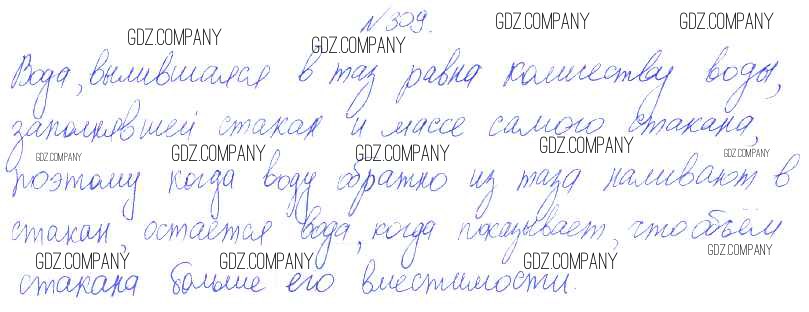 №309.
Вода, вылившаяся в таз равна количеству воды,
заполнявшей стакан и массе самого стакана,
поэтому когда воду обратно из таза наливают в
стакан, остаётся вода, когда показывает, что объём
стакана больше его вместимости.
GDZ.COMPANY GDZ.COMPANY GDZ.COMPANY GDZ.COMPANY
GDZ.COMPANY GDZ.COMPANY GDZ.COMPANY GDZ.COMPANY GDZ.COMPANY
GDZ.COMPANY GDZ.COMPANY GDZ.COMPANY GDZ.COMPANY